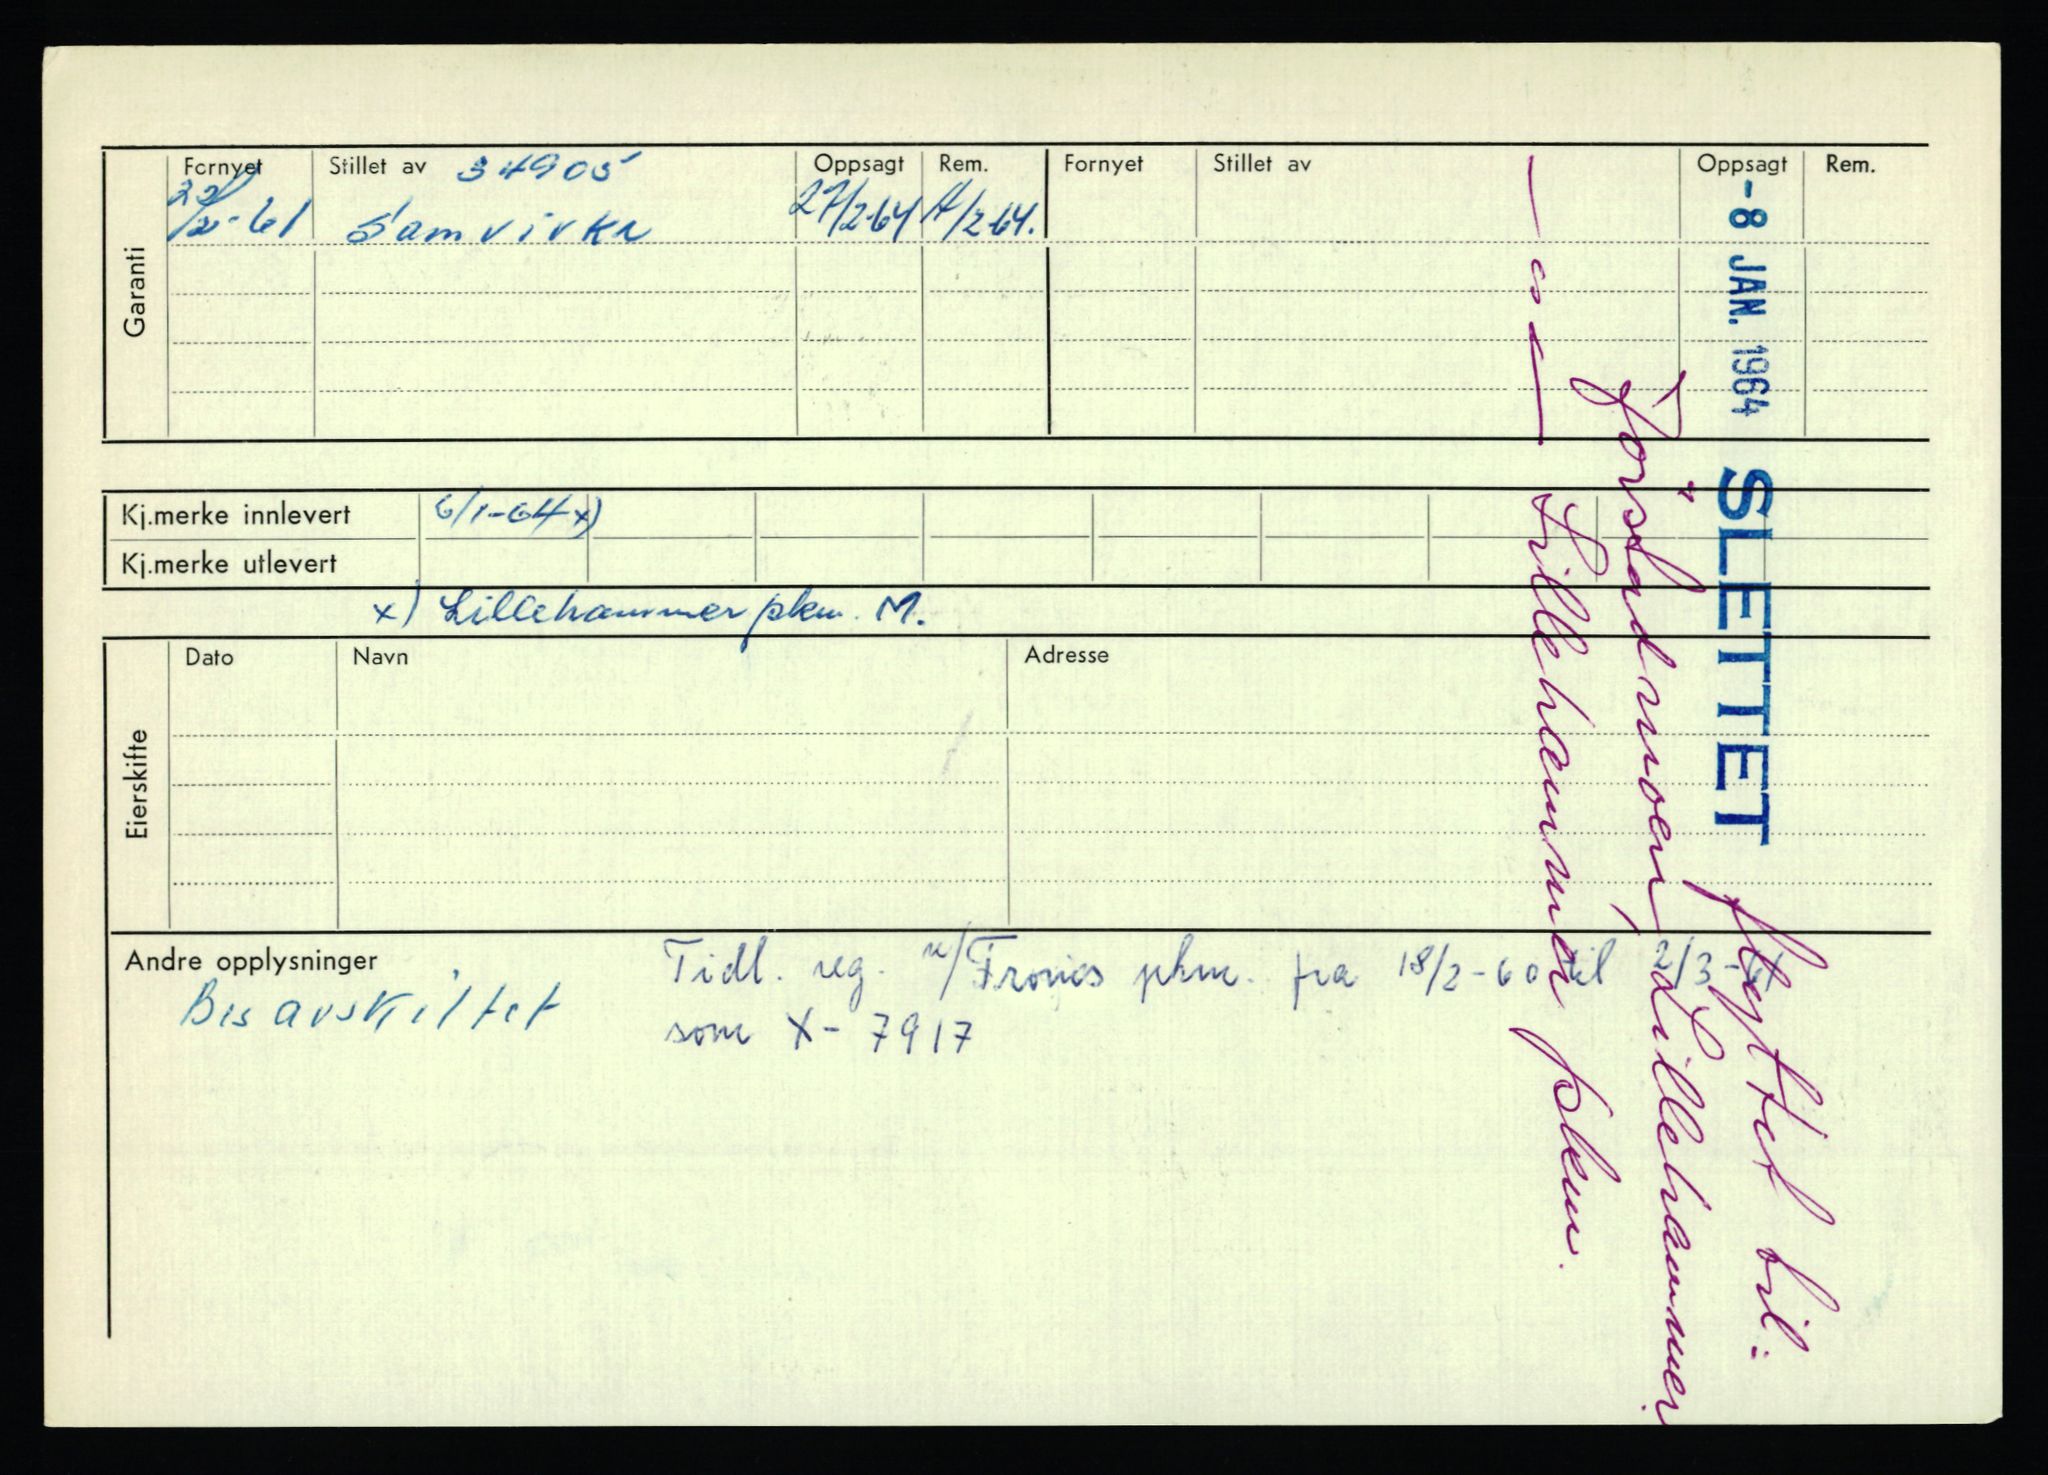 Garanti
Fornyet Stillet av 34905 Oppsagt Rem. Fornyet Stillet av Oppsagt Rem.
-61 Samvirke 27/2-64 /2-64.
Kj.merke innlevert 6/1-64 x)
Kj.merke utlevert
x) Lillehammer pkm. M.
Eierskifte
Dato Navn Adresse
Andre opplysninger
Bes avskiltet
Tidl. reg. v/ Fronies pkm. fra 18/2-60 til 2/3-61
som X-7917
-8 JAN. 1964 SLETTET
flyttet til:
Jörstadmoen, Lillehammer
Lillehammer pkm.